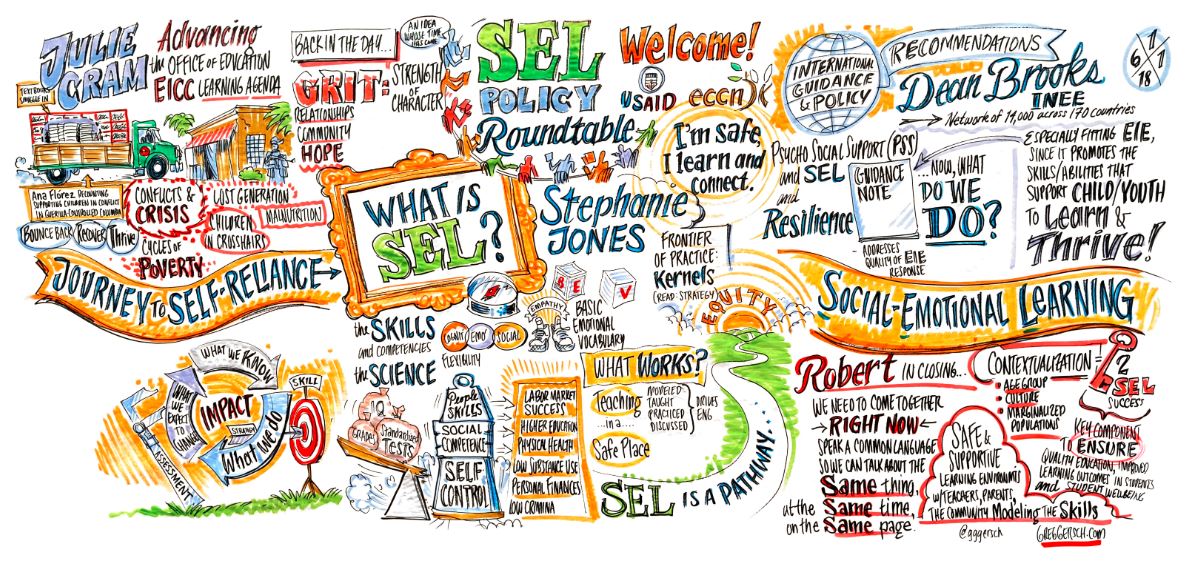 JULIE
CRAM
Advancing
the OFFICE of EDUCATION
EICC LEARNING AGENDA
TEXTBOOKS
SMUGGLE IN
Ana Flórez RECOUNTING
SUPPORTING CHILDREN IN CONFLICT
IN GUERILLA CONTROLLED COLOMBIA
BOUNCE BACK
RECOVER
Thrive
CONFLICTS &
CRISIS
CYCLES OF
POVERTY
LOST GENERATION
MALNUTRITION
CHILDREN
IN CROSSHAIRS
JOURNEY TO SELF-RELIANCE
BACK IN THE DAY...
AN IDEA
WHOSE TIME
HAS COME
GRIT:
STRENGTH
OF
CHARACTER
RELATIONSHIPS
COMMUNITY
HOPE
SEL
POLICY
Roundtable
Welcome!
USAID
eccn
I'm safe,
I learn and
connect.
WHAT IS
SEL?
Stephanie
JONES
FRONTIER
OF PRACTICE:
Kernels
(READ: STRATEGY)
the SKILLS
and COMPETENCIES
the SCIENCE
EMO
SOCIAL
FLEXIBILITY
EMPATHY
B
E
V
BASIC
EMOTIONAL
VOCABULARY
EQUITY
INTERNATIONAL
GUIDANCE
& POLICY
RECOMMENDATIONS
6/7/18
Dean Brooks
INEE
Network of 14,000 across 190 countries
PSYCHO SOCIAL SUPPORT (PSS)
and SEL
and
Resilience
GUIDANCE
NOTE
ADDRESSES
QUALITY OF EIE
RESPONSE
...NOW, WHAT
DO WE
DO?
ESPECIALLY FITTING EIE,
SINCE IT PROMOTES THE
SKILLS/ABILITIES THAT
SUPPORT CHILD/YOUTH
TO Learn &
Thrive!
SOCIAL-EMOTIONAL LEARNING
WHAT WE KNOW
WHAT
WE
EXPECT
TO
CHANGE
IMPACT
What we do
ASSESSMENT
SKILL
IQ
GRADES
Standardized
TESTS
People
SKILLS
SOCIAL
COMPETENCE
SELF
CONTROL
LABOR MARKET
SUCCESS
HIGHER EDUCATION
PHYSICAL HEALTH
LOW SUBSTANCE USE
PERSONAL FINANCES
LOW CRIMINA
WHAT WORKS?
Teaching
in a....
Safe Place
MODELED
TAUGHT
PRACTICED
DISCUSSED
DRIVES
ENG
SEL IS A PATHWAY...
Robert IN CLOSING...
WE NEED TO COME TOGETHER
RIGHT NOW
SPEAK A COMMON LANGUAGE
SO WE CAN TALK ABOUT THE
Same thing,
at the Same time,
on the Same page.
CONTEXTUALIZATION =
• AGE GROUP
• CULTURE
• MARGINALIZED
POPULATIONS
2
SEL
SUCCESS
KEY COMPONENT
TO ENSURE
QUALITY EDUCATION, IMPROVED
LEARNING OUTCOMES IN STUDENTS
and STUDENT WELLBEING
SAFE &
SUPPORTIVE
LEARNING ENVIRONMTS
W/TEACHERS, PARENTS,
THE COMMUNITY Modeling THE Skills
@gggersch
GREGGERSCH.COM